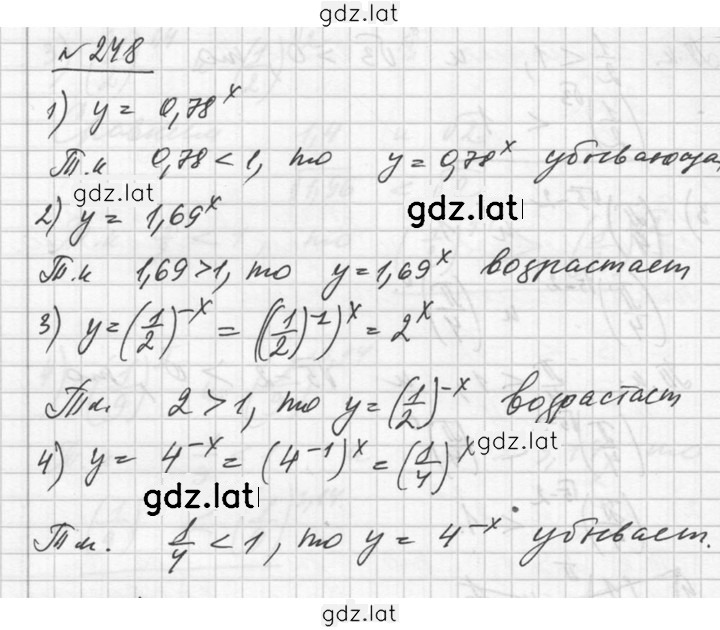 gdz.lat
№ 248
1) y = 0,78^x
Т.к 0,78 < 1, то y = 0,78^x убывающая,
gdz.lat
2) y = 1,69^x
gdz.lat
Т.к 1,69 > 1, то y = 1,69^x возрастает
3) y = (1/2)^-x = ((1/2)^-1)^x = 2^x
Т.к. 2 > 1, то y = (1/2)^-x возрастает
4) y = 4^-x = (4^-1)^x = (1/4)^x
gdz.lat
gdz.lat
Т.к. 1/4 < 1, то y = 4^-x убывает.
gdz.lat